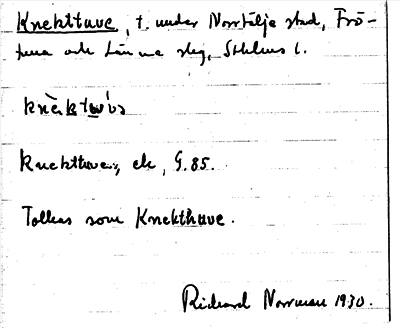 Knekttuve, t. under Norrtälje stad, Frö-
tuna och Länna slg, Sthlms l.
knèktu̇və
Knekttuve, ek, G. 85.
Tolkas som Knekthuve.
Richard Norrman 1930.